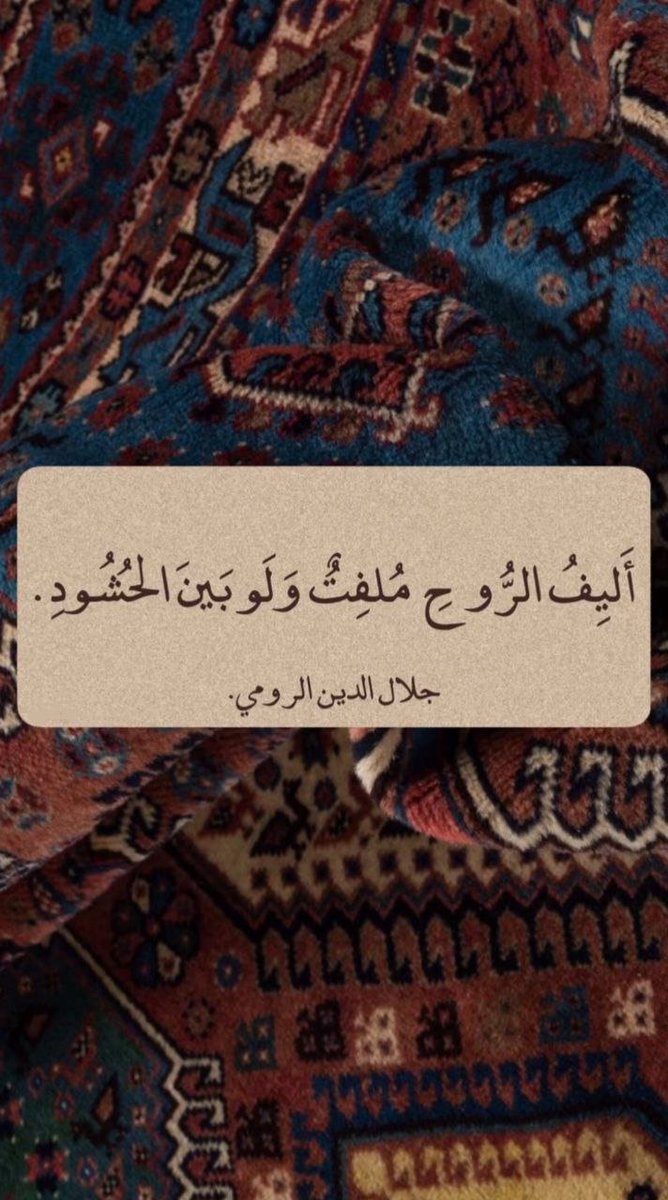 أَلِيفُ الرُّوحِ مُلفِتٌ وَلَو بَينَ الحُشُودِ.
جلال الدين الرومي.